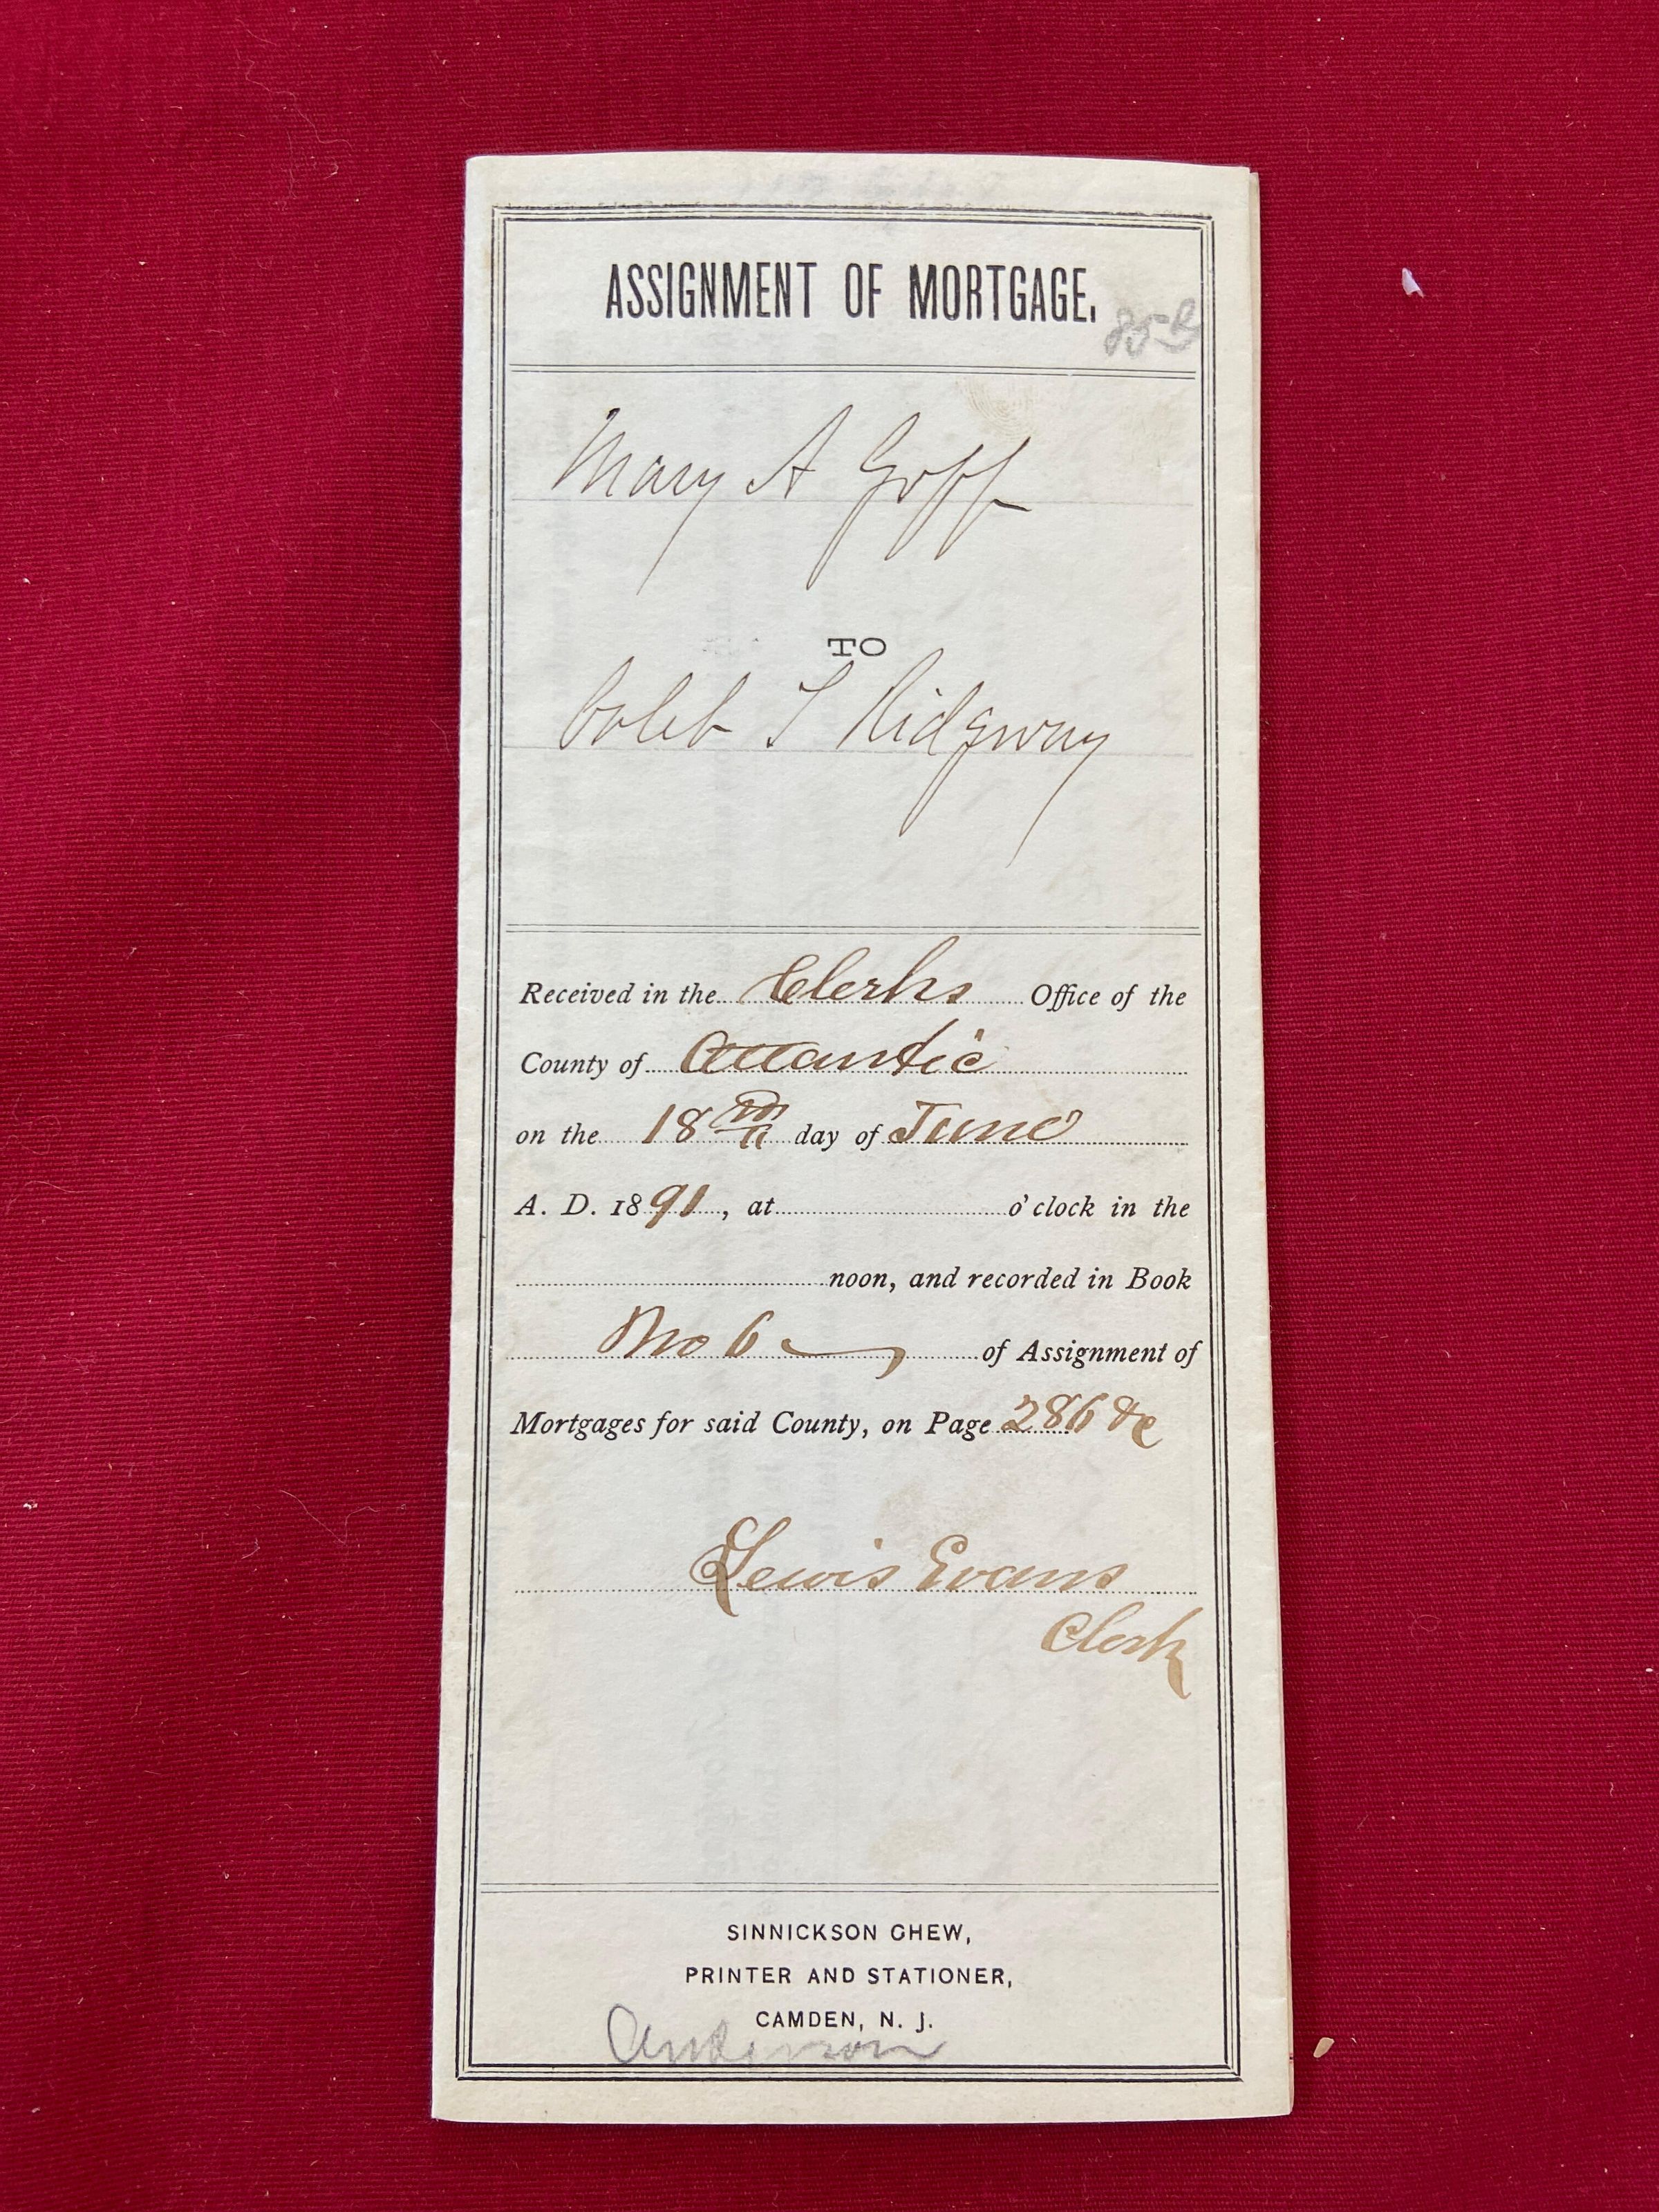 ASSIGNMENT OF MORTGAGE.
85 B
Mary A Goff
TO
Caleb S Ridgway
Received in the Clerks Office of the
County of Atlantic
on the 18th day of June
A. D. 1891, at o'clock in the
noon, and recorded in Book
No 6 of Assignment of
Mortgages for said County, on Page 286 &c
Lewis Evans
Clerk
SINNICKSON CHEW,
PRINTER AND STATIONER,
CAMDEN, N. J.
Anderson